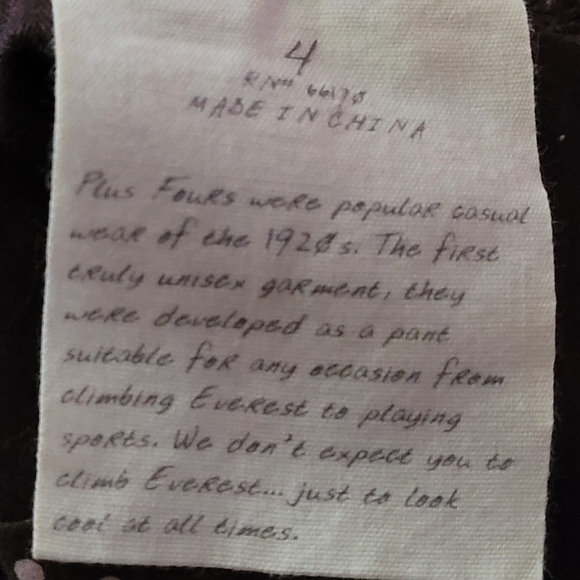 4
RN# 66170
MADE IN CHINA
Plus Fours were popular casual
wear of the 1920s. The first
truly unisex garment, they
were developed as a pant
suitable for any occasion from
climbing Everest to playing
sports. We don't expect you to
climb Everest... just to look
cool at all times.